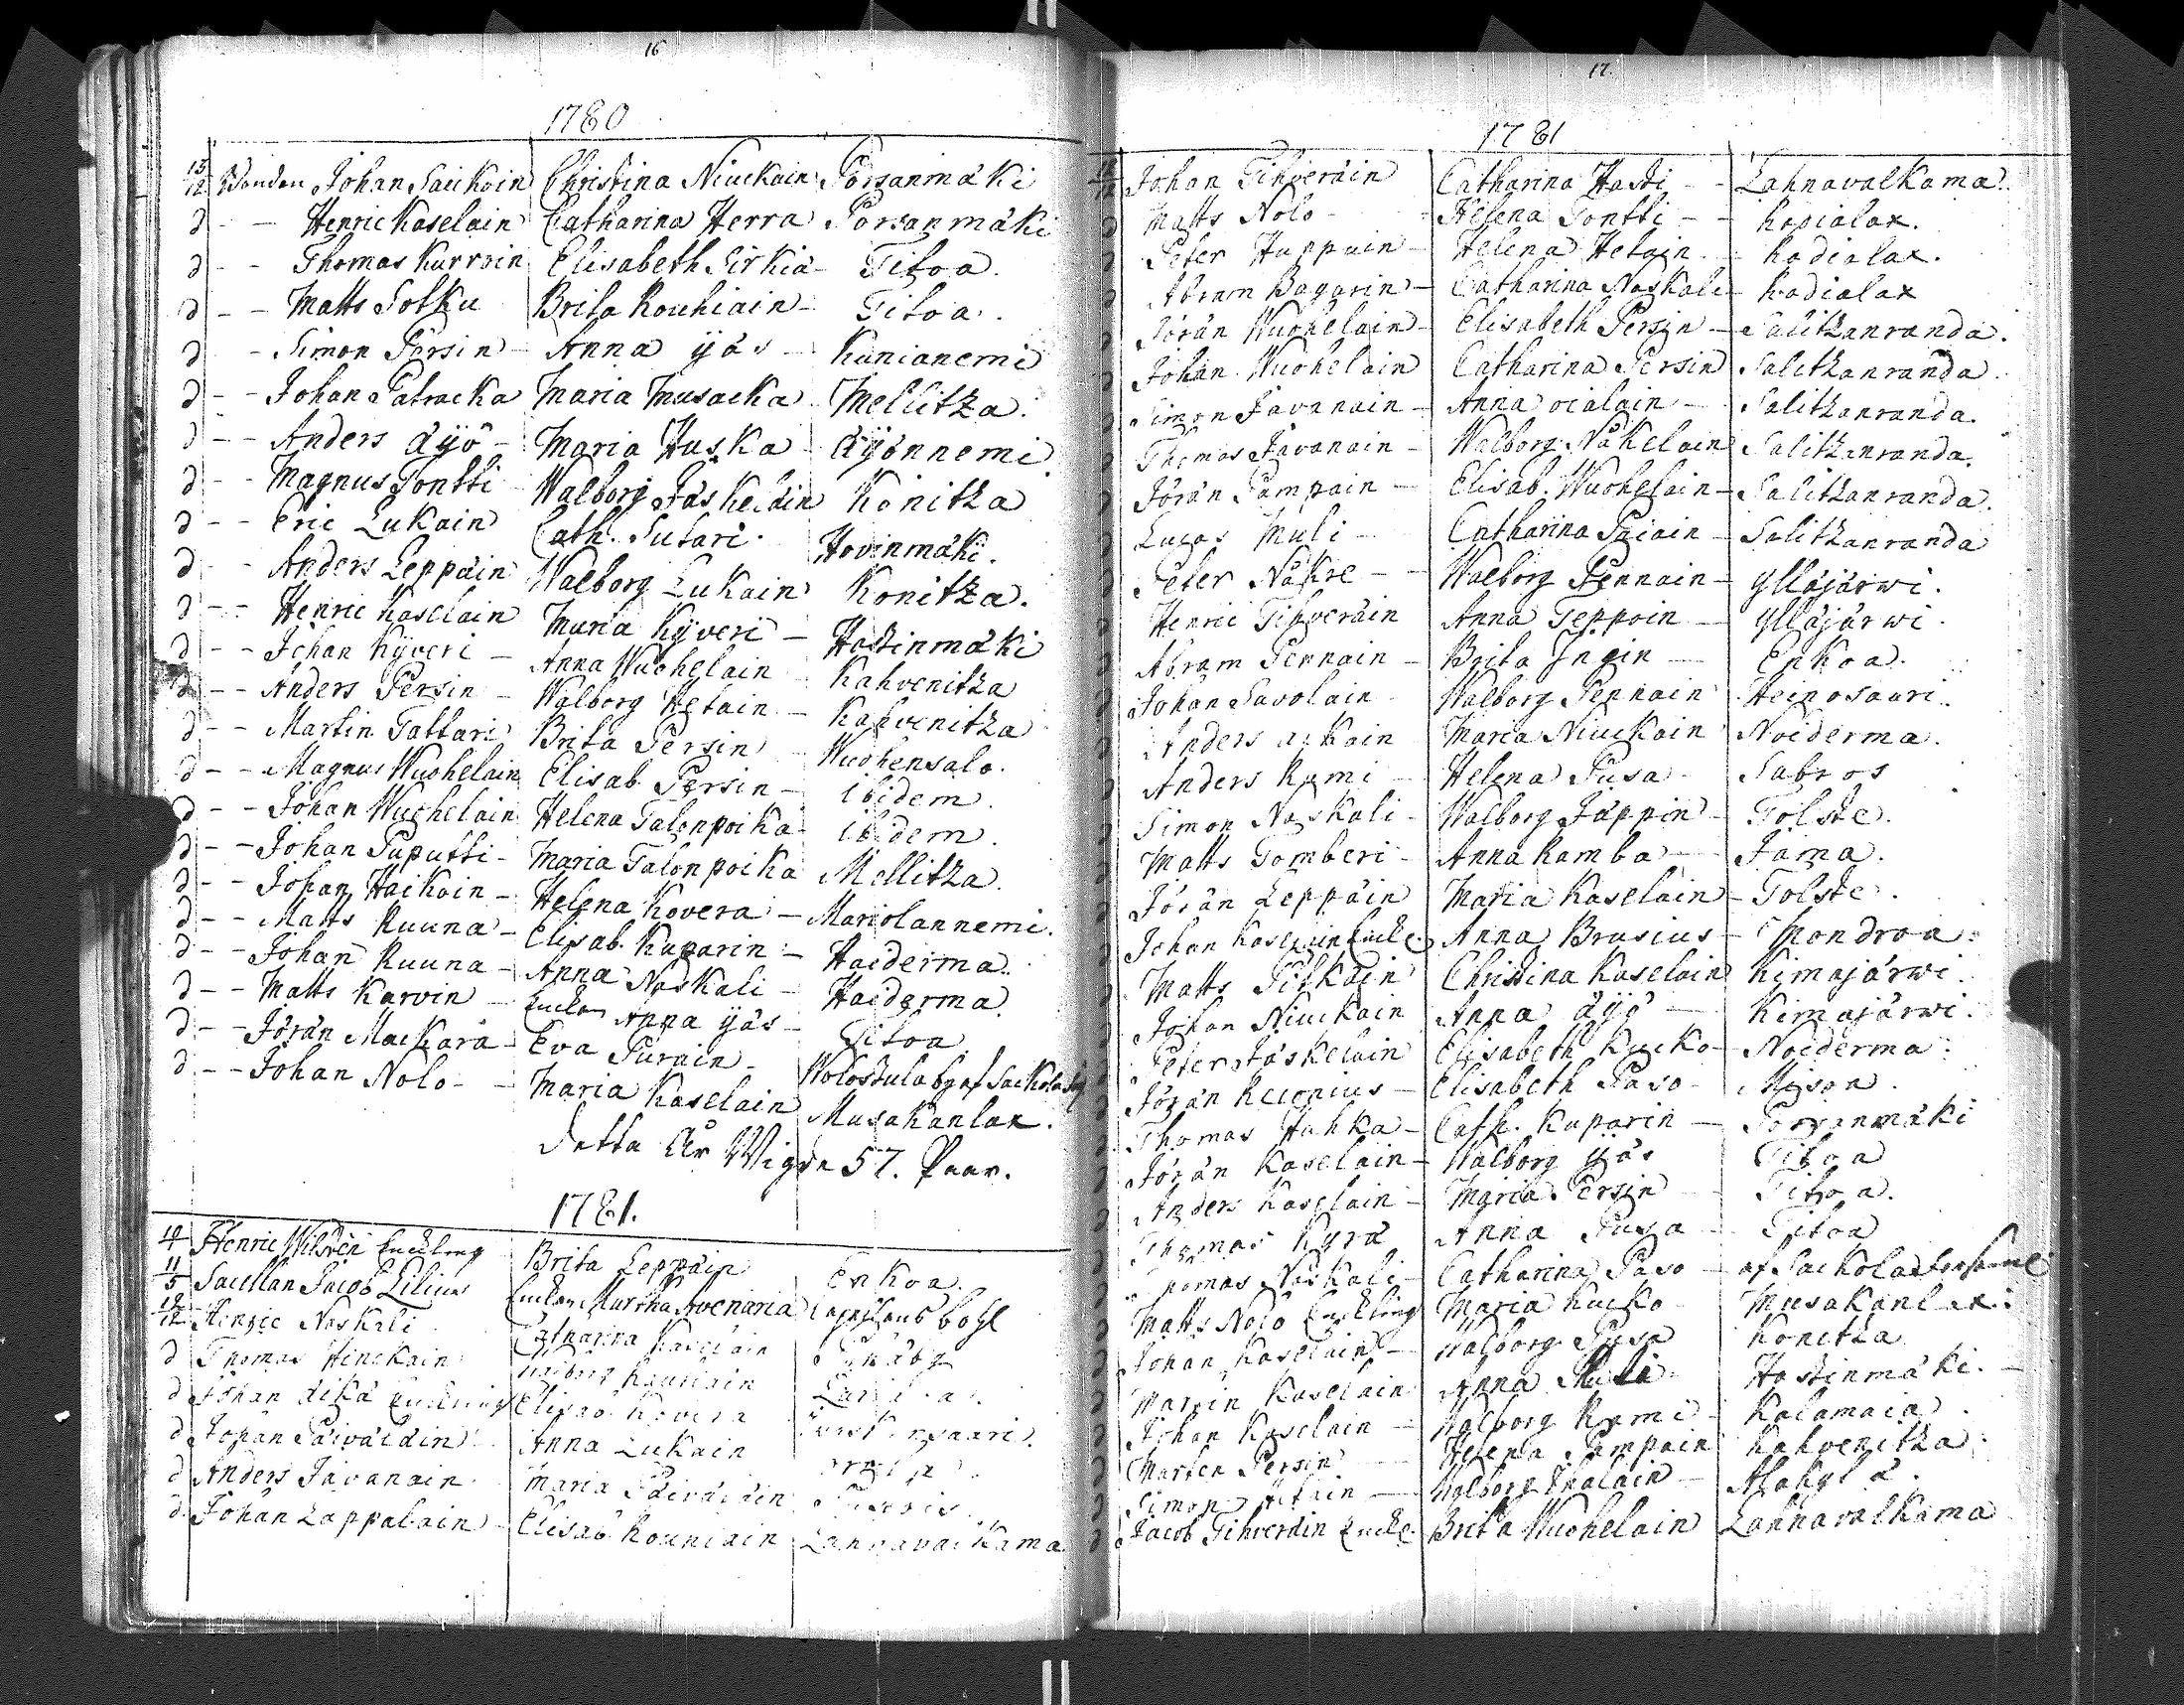 16
1780
13/12 Bonden Johan Saickoin Christina Niuckain Porsanmäki
d - - Henric Kaselain Catharina Herra Porsanmäki
d - - Thomas Kurvoin Elisabeth Sirkiä - Titoa.
d - - Matts Sotku Brita Rouhiain - Titoa.
d - - Simon Pärsin - Anna Yjäs - Kunianemi
d - - Johan Patracka Maria Musacka Mellitza.
d - - Anders Äijö - Maria Huska Äijönnemi
d - - Magnus Tontti Walborg Jäskeläin Konitza
d - - Eric Lukain Cath. Sutari. Hovinmäki.
d - - Anders Leppäin Walborg Lukain Konitza.
d - - Henric Kaselain Maria Kyveri - Hastinmäki
d - - Johan Kyveri - Anna Wuohelain Kahvenitza
d - - Anders Persin - Walborg Hetain - Kahvenitza
d - - Martin Tattari Brita Persin Wuohensalo.
d - - Magnus Wuohelain Elisab. Persin - ibidem.
d - - Johan Wuohelain Helena Talonpoika ibidem.
d - - Johan Puputti - Maria Talonpoika Mellitza.
d - - Johan Haikoin - Helena Kovera - Mariolannemi.
d - - Matts Ruuna - Elisab. Kuparin - Haiderma.
d - - Johan Ruuna - Anna Naskali - Haiderma.
d - - Matts Karvin - Enckan Anna Yjäs - Titoa
d - - Jöran Mackara - Eva Purain - Wolostula by af Sackola
d - - Johan Nolo - - Maria Kaselain Musakanlax.
Detta År Wigde 57. Paar.
1781.
Henric Wilskén Enckling Brita Leppäin Enkoa.
11/5 Sacellan Jacob Lilius Enckan Martha Avenaria Capellans bohl
Henric Naskali Catharina Kaselain
d Thomas Hinckain Walborg Kauriain
d Johan Äikä Enckling Elisab. Kovera
d Johan Päiväläin Anna Lukain
d Anders Javanain Maria Päiväläin
d Johan Lappalain - Elisab Rouhiain Lahnavalkama
17.
1781
Johan Tihveräin Catharina Hasti - - Lahnavalkama.
d Matts Nolo - - Helena Tontti - - Kopialax.
d Peter Huppuin - Helena Hetain - Kadialax.
d Abram Bagarin - Catharina Naskali - Kadialax
d Jöran Wuohelain - Elisabeth Persin - Salitzanranda.
d Johan Wuohelain Catharina Persin Salitzanranda.
d Simon Javanain - Anna oialain - Salitzanranda.
d Thomas Javanain - Walborg Näkelain Salitzanranda.
d Jöran Pampain - Elisab. Wuohelain - Salitzanranda.
d Lucas Muli - Catharina Paiain - Salitzanranda
d Peter Näkre - - Walborg Pennain - Ylläjärwi.
d Henric Tihveräin Anna Teppoin - Ylläjärwi.
d Abram Pennain - Brita Ingin - Enkoa.
d Johan Savolain - Walborg Pennain Heinosaari.
d Anders Maria Niuckain Noiderma.
d Anders Rämi - Helena Pusa - Sabros
d Simon Naskali - Walborg Jäppin - Tolste.
d Matts Tomberi - Anna Ramba - Jama.
d Jöran Leppäin Maria Kaselain - Tolste.
d Johan Kaselain Enckl. Anna Brusius - Mondroa.
d Matts Pitkäin Christina Kaselain Kimajärwi.
d Johan Niuckain Anna Äijö - Kimajärwi.
d Peter Jäskelain Elisabeth Kucko - Noiderma.
d Jöran Relenius - Elisabeth Paso - Misoa.
d Thomas Huhka - Cath. Kuparin - Porsanmäki
d Jöran Kaselain - Walborg Yjäs Titoa
d Anders Kaselain - Maria Persin - Titoa.
d Thomas Kyrä Anna Pusa - Titoa
d Thomas Naskali - Catharina Paso - af Sackola
d Matts Nolo Enckling Maria Kucko - Musakanlax.
d Johan Kaselain - Walborg Pusa Konitza
d Martin Kaselain Anna Muli Hastinmäki. -
d Johan Kaselain - Walborg Rämi - Kalamaia.
d Marten Persin - Helena Pampain Kahvenitza
d Simon Hetain - Walborg Ihalain - Alakylä.
d Jacob Tihveräin Enckl. Brita Wuohelain Lahnavalkama